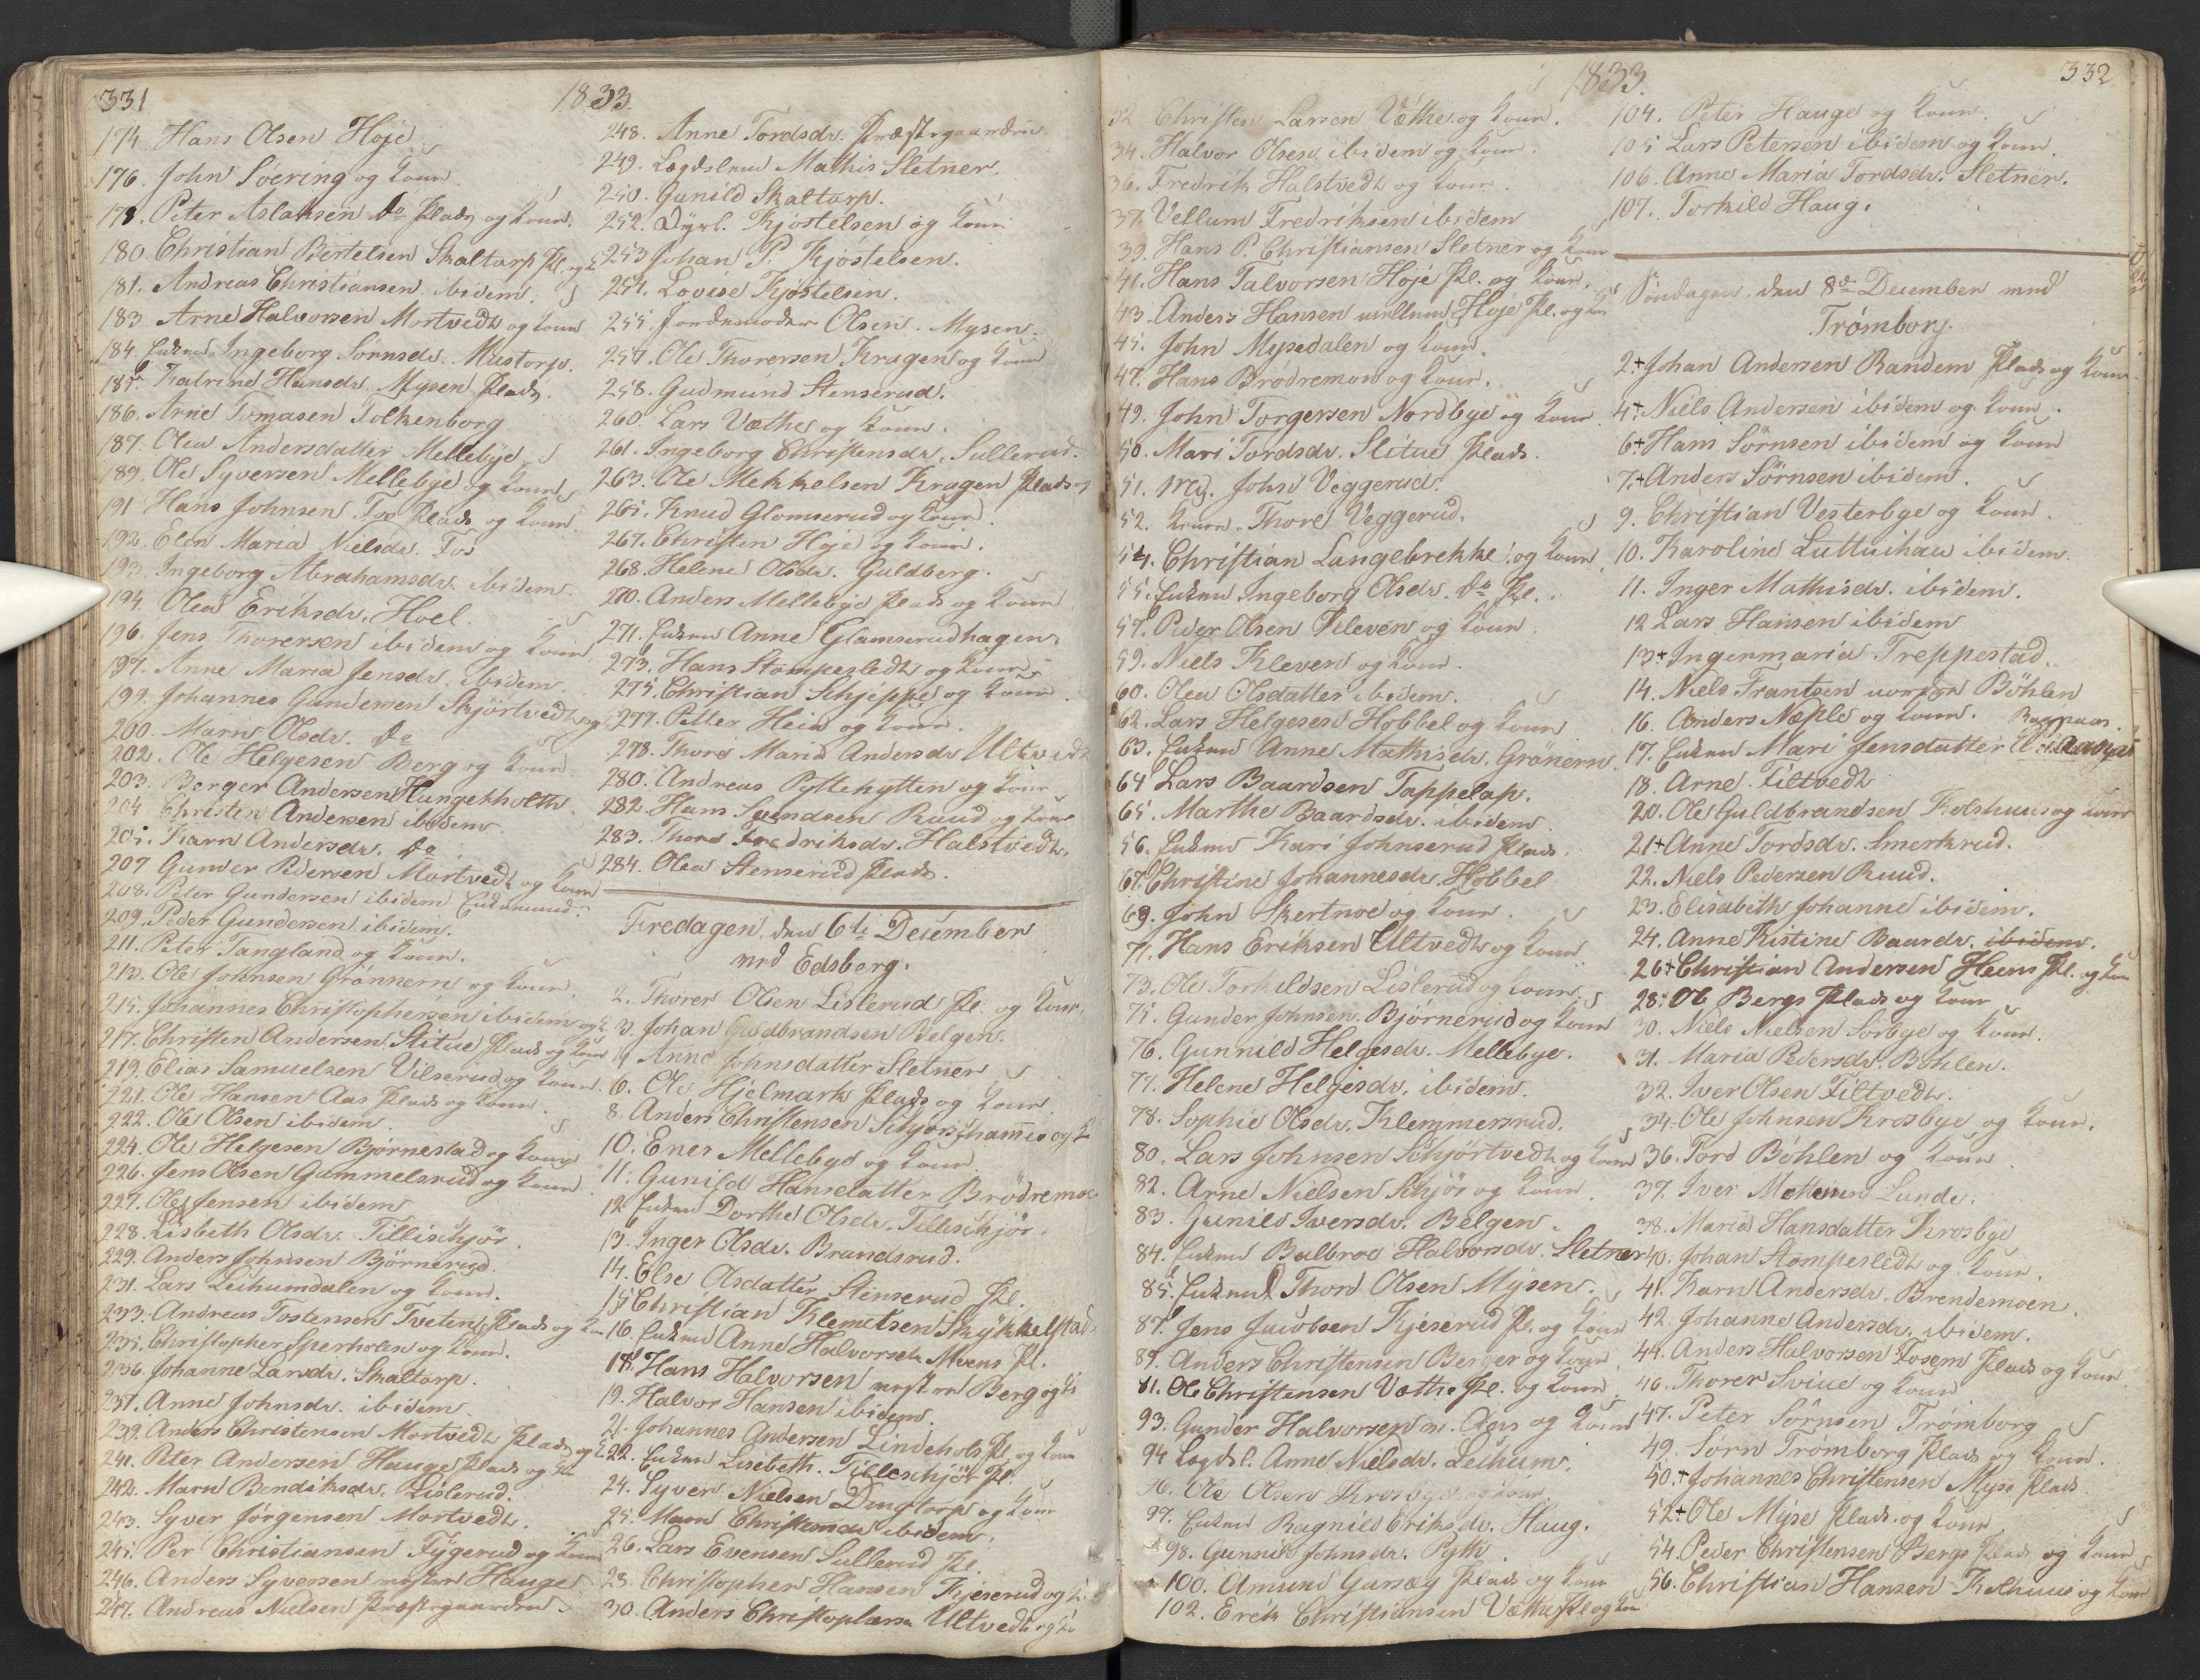 331
1833.
174. Hans Olsen Höje
176. John Söering og Kone
178. Peter Aslaksen do Plads og Kone.
180. Christian Bertelsen Skaltorp Pl. og K
181. Andreas Christiansen ibidem.
183. Arne Halvorsen Mortvedt og Kone
184. Enken Ingeborg Sörnsdr. Mustorp.
185. Katrine Hansdr. Mysen Plads.
186. Arne Tomasen Folkenborg
187. Olea Andersdatter Mellebye
189. Ole Syversen Mellebye og Kone
191 Hans Johnsen Fos Plads og Kone.
192. Elen Maria Nielsdr. Fos
193. Ingeborg Abrahamsdr. ibidem.
194. Olea Eriksdr. Hoel.
196. Jens Thorersen ibidem og Kone
197. Anne Maria Jensdr. ibidem.
199. Johannes Gundersen Skjörtvedt og
200. Maren Olsdr. do
202. Ole Helgesen Berg og Kone
203. Berger Andersen Hungekholth.
204 Christen Andersen ibidem.
205. Karn Andersdr. do
207 Gunder Pedersen Mortvedt og Kone
208. Peder Gundersen ibidem Enkemand.
209. Peder Gundersen ibidem.
211. Peter Tangland og Kone.
213. Ole Johnsen Grönnern og Kone.
215. Johannes Christophersen ibidem og K.
217. Christen Andersen Slitue Plads og Kone
219. Elias Samuelsen Vilserud og Kone.
221. Ole Hansen Aas Plads og Kone.
222. Ole Olsen ibidem.
224. Ole Helgesen Björnestad og Kone
226. Jens Olsen Gammelsrud og Kone
227. Ole Jensen ibidem
228. Lisbeth Olsdr. Tillischjör.
229. Anders Johnsen Björnerud.
231. Lars Leihumdalen og Kone.
233. Andreas Tostensen Tveten Plads og Kone
235. Christopher Sperholen og Kone.
236. Johanne Larsdr. Skaltorp.
237. Anne Johnsdr. ibidem.
239. Anders Christensen Mortvedt Plads og K
241. Peter Andersen Hauge Plads og K
242. Maren Bendiksdr. Lislerud.
243. Syver Jörgensen Mortvedt.
245. Per Christiansen Fygerud og Kone
246. Anders Syversen Hauge
247. Andreas Nielsen Præstegaarden.
248. Anne Tordsdr. Præstegaarden.
249. Lægdslem Mathis Sletner.
250. Gunild Skaltorp.
252. Kjöstelsen og Kone
253 Johan P. Kjöstelsen.
254. Lovise Kjöstelsen.
255. Jordemoder Olsen. Mysen.
257. Ole Thorersen Kragen og Kone
258. Gudmund Stenserud.
260. Lars Væthe og Kone.
261. Ingeborg Christensdr. Sullerud.
263. Ole Mekkelsen Kragen Plads og
265. Knud Glomserud og Kone.
267. Christen Höje og Kone.
268. Helene Olsdr. Guldberg.
270. Anders Mellebye Plads og Kone
271. Enken Anne Glamserudhagen.
273. Hans Stömpesledt og Kone
275. Christian Schjeppe og Kone
277. Petter Heia og Kone.
278. Thore Marie Andersdr Ultvedt
280. Andreas Pyttehytten og Kone
282. Hans Svendsen Ruud og Kone
283. Thore Fredriksdr. Halstvedt.
284. Olea Stenserud Plads.
Fredagen den 6te December
ved Edsberg.
2. Thorer Olsen Lislerud Pl. og Kone.
3. Johan Guldbrandsen Belgen.
4 Anne Johnsdatter Sletner
6. Ole Hjelmark Plads og Kone
8 Anders Christensen Schjörshammer og K
10. Ener Mellebye og Kone.
11. Gunild Hansdatter Brödremoe
12 Enken Dorthe Olsdr. Tillischjör.
13. Inger Olsdr. Brandsrud.
14. Else Olsdatter Stenserud Pl.
15 Christian Klemetsen Skykkelstad
16. Enken Anne Halvorsdr Moens Pl.
18. Hans Halvorsen Berg og K
19. Halvor Hansen ibidem.
21. Johannes Andersen Lindehols Pl. og Kone
22. Enken Lisebeth. Tilleschjör Pl.
24. Syver Nielsen Dingtorp og Kone
25. Maren Christensdr ibidem.
26. Lars Evensen Sullerud Pl.
28. Christopher Hansen Kjeserud og K
30. Anders Christophersen Ultvedt og K
332
1833.
32 Christen Larsen Væthe og Kone.
34. Halvor Olsen ibidem og Kone.
36. Fredrik Halstvedt og Kone.
37. Vellum Fredriksen ibidem
39. Hans P. Christiansen Sletner og Kone
41. Hans Talvorsen Höje Pl. og Kone.
43. Anders Hansen mellem Höje Pl. og Kone
45. John Mysedalen og Kone.
47. Hans Brödremoen og Kone.
49. John Torgersen Nordbye og Kone
50. Mari Tordsdr. Slitue Plads.
51. John Veggerud.
52. Konen Thore Veggerud.
54. Christian Langebrekke og Kone
55. Enken Ingeborg Olsdr. do Pl.
57. Peder Olsen Kleven og Kone
59. Niels Kleven og Kone.
60. Olea Olsdatter ibidem.
62. Lars Helgesen Hobbel og Kone
63. Enken Anne Mathisdr. Grönern
64 Lars Baardsen Tappelap.
65. Marthe Baardsdr. ibidem
56. Enken Kari Johnserud Plads.
67. Christine Johannesdr. Hobbel
69. John Skertnoe og Kone.
71. Hans Eriksen Ultvedt og Kone
73. Ole Torkildsen Lislerud og Kone.
75. Gunder Johnsen Björnerud og Kone
76. Gunnild Helgesdr. Mellebye.
77. Helene Helgesdr. ibidem.
78. Sophie Olsdr. Klemmersrud.
80. Lars Johnsen Schjörtvedt og Kone
82. Arne Nielsen Schjör og Kone.
83. Gunild Iversdr. Belgen.
84. Enken Balbroe Halvorsdr. Sletner
85. Enkem. Thord Olsen Mysen.
87. Jens Jacobsen Kjeserud Pl. og Kone
89. Anders Christensen Berger og Kone
91. Ole Christensen Væthe Pl. og Kone
93. Gunder Halvorsen n. Aas og Kone
94 Lægdsl. Anne Nielsdr. Leihum.
96. Ole Olsen Krosbye og Kone
97. Enken Ragnild Eriksdr. Haug.
98. Gunnild Johnsdr. Pytt
100. Amund Garseg Plads og Kone
102. Erick Christiansen Væthe Pl og Kone
104. Peter Hauge og Kone.
105 Lars Petersen ibidem og Kone.
106. Anne Maria Tordsdr. Sletner.
107. Torkild Haug.
Söndagen den 8de December ved
Trömborg.
2+ Johan Andersen Randem Plads og Kone
4+ Niels Andersen ibidem og Kone.
6+ Hans Sörnsen ibidem og Kone
7+ Anders Sörnsen ibidem.
9. Christian Vesterbye og Kone.
10. Karoline ibidem.
11. Inger Mathisdr. ibidem.
12 Lars Hansen ibidem
13+ Ingermaria Treppestad.
14. Niels Frantsen Böhlen
16. Anders Næple og Kone.
17. Enken Mari Jensdatter
18. Arne Filtvedt
20. Ole Guldbrandsen Kolshuus og Kone
21+ Anne Tordsdr. Smerkrud.
22. Niels Pedersen Ruud.
23. Elisabeth Johanne ibidem.
24. Anne Kistine Baardr. ibidem.
26+ Christian Andersen Heens Pl. og Kone
28. Ole Bergs Plads og Kone
30. Niels Nielsen Sörbye og Kone.
31. Maria Pedersdr. Böhlen.
32. Iver Olsen Filtvedt.
34. Ole Johnsen Krosbye og Kone.
36. Tord Böhlen og Kone
37. Iver Lunde.
38. Marie Hansdatter Krosbye
40. Johan Stömpesledt og Kone.
41. Karn Andersdr. Brendemoen.
42. Johanne Andersdr. ibidem.
44. Anders Halvorsen Fosem Plads og Kone
46. Thorer Sviue og Kone
47. Peter Sörnsen Trömborg
49. Sörn Trömborg Plads og Kone.
50.+ Johannes Christensen Myse Plads.
52+ Ole Myse Plads og Kone
54. Peder Christensen Bergs Plads og Kone
56. Christian Hansen Kolhuus og Kone